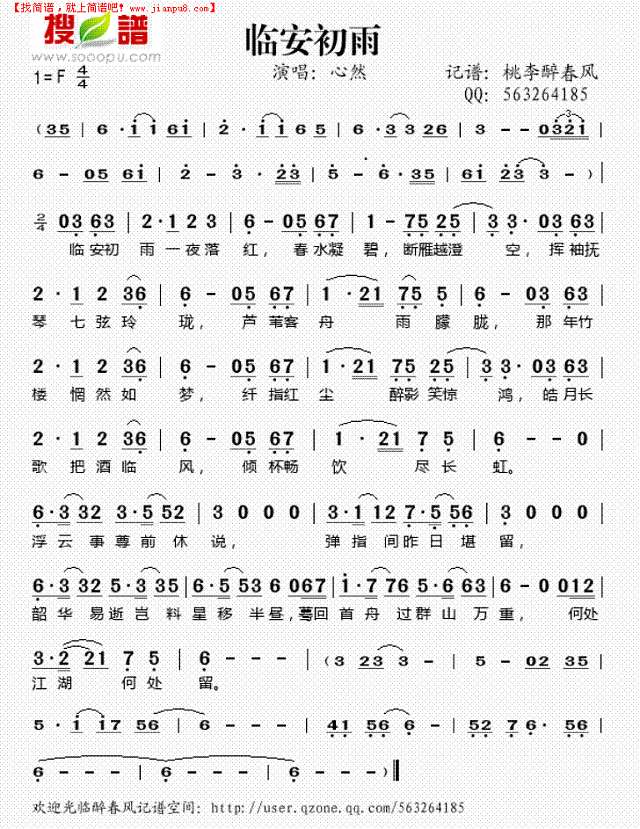 【找简谱，就上简谱吧!】
www.jianpu8.com
搜谱
www.sooopu.com
临安初雨
1=F 4/4
演唱：心然
记谱：桃李醉春风
QQ：563264185
(35 | 6·ii 6i | 2·ii 65 | 6·33 26 | 3 - - 0321 |
6 - 05 6i | 2 - 3·23 | 5 - 6·35 | 6i 23 3 - ) |
2/4 03 63 | 2·1 2 3 | 6 - 05 67 | 1 - 75 25 | 3 3·03 63 |
临安初 雨一夜落 红，春水凝 碧，断雁越澄 空，挥袖抚
2·1 2 36 | 6 - 05 67 | 1·21 75 | 6 - 03 63 |
琴 七弦玲 珑，芦苇客 舟 雨朦 胧，那年竹
2·1 2 36 | 6 - 05 67 | 1·21 75 25 | 3 3·03 63 |
楼 惘然如 梦，纤指红 尘 醉影笑惊 鸿，皓月长
2·1 2 36 | 6 - 05 67 | 1·21 7 5 | 6 - - 0 |
歌 把酒临 风，倾杯畅 饮 尽长 虹。
6·3 32 3·5 52 | 3 0 0 0 | 3·1 12 7·5 56 | 3 0 0 0 |
浮云 事尊前休 说， 弹指间昨日堪 留，
6·3 32 5·3 35 | 6·5 53 6 067 | i·7 76 5·6 63 | 6 - 0 012 |
韶华 易逝岂 料星移半昼，蓦回 首舟 过群山万 重，何处
3·2 21 7 5 | 6 - - - | (3 23 3 - | - - 5 - | 02 35 |
江湖 何处 留。
5·i i7 56 | 6 - | - - | 41 56 6 - | 52 76·56 |
6 - - - | 6 - - - | 6 - - - )‖
欢迎光临醉春风记谱空间：http://user.qzone.qq.com/563264185